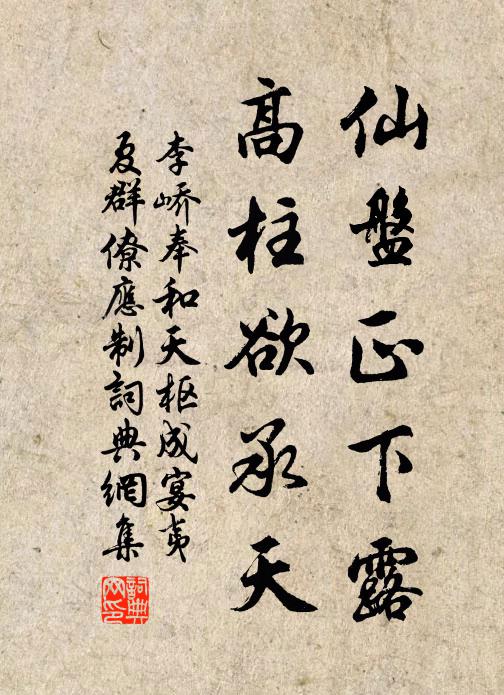 仙盤正下露
高柱欲承天
李嶠奉和天枢成宴夷
夏群僚應制詞典網集
詞典
网印